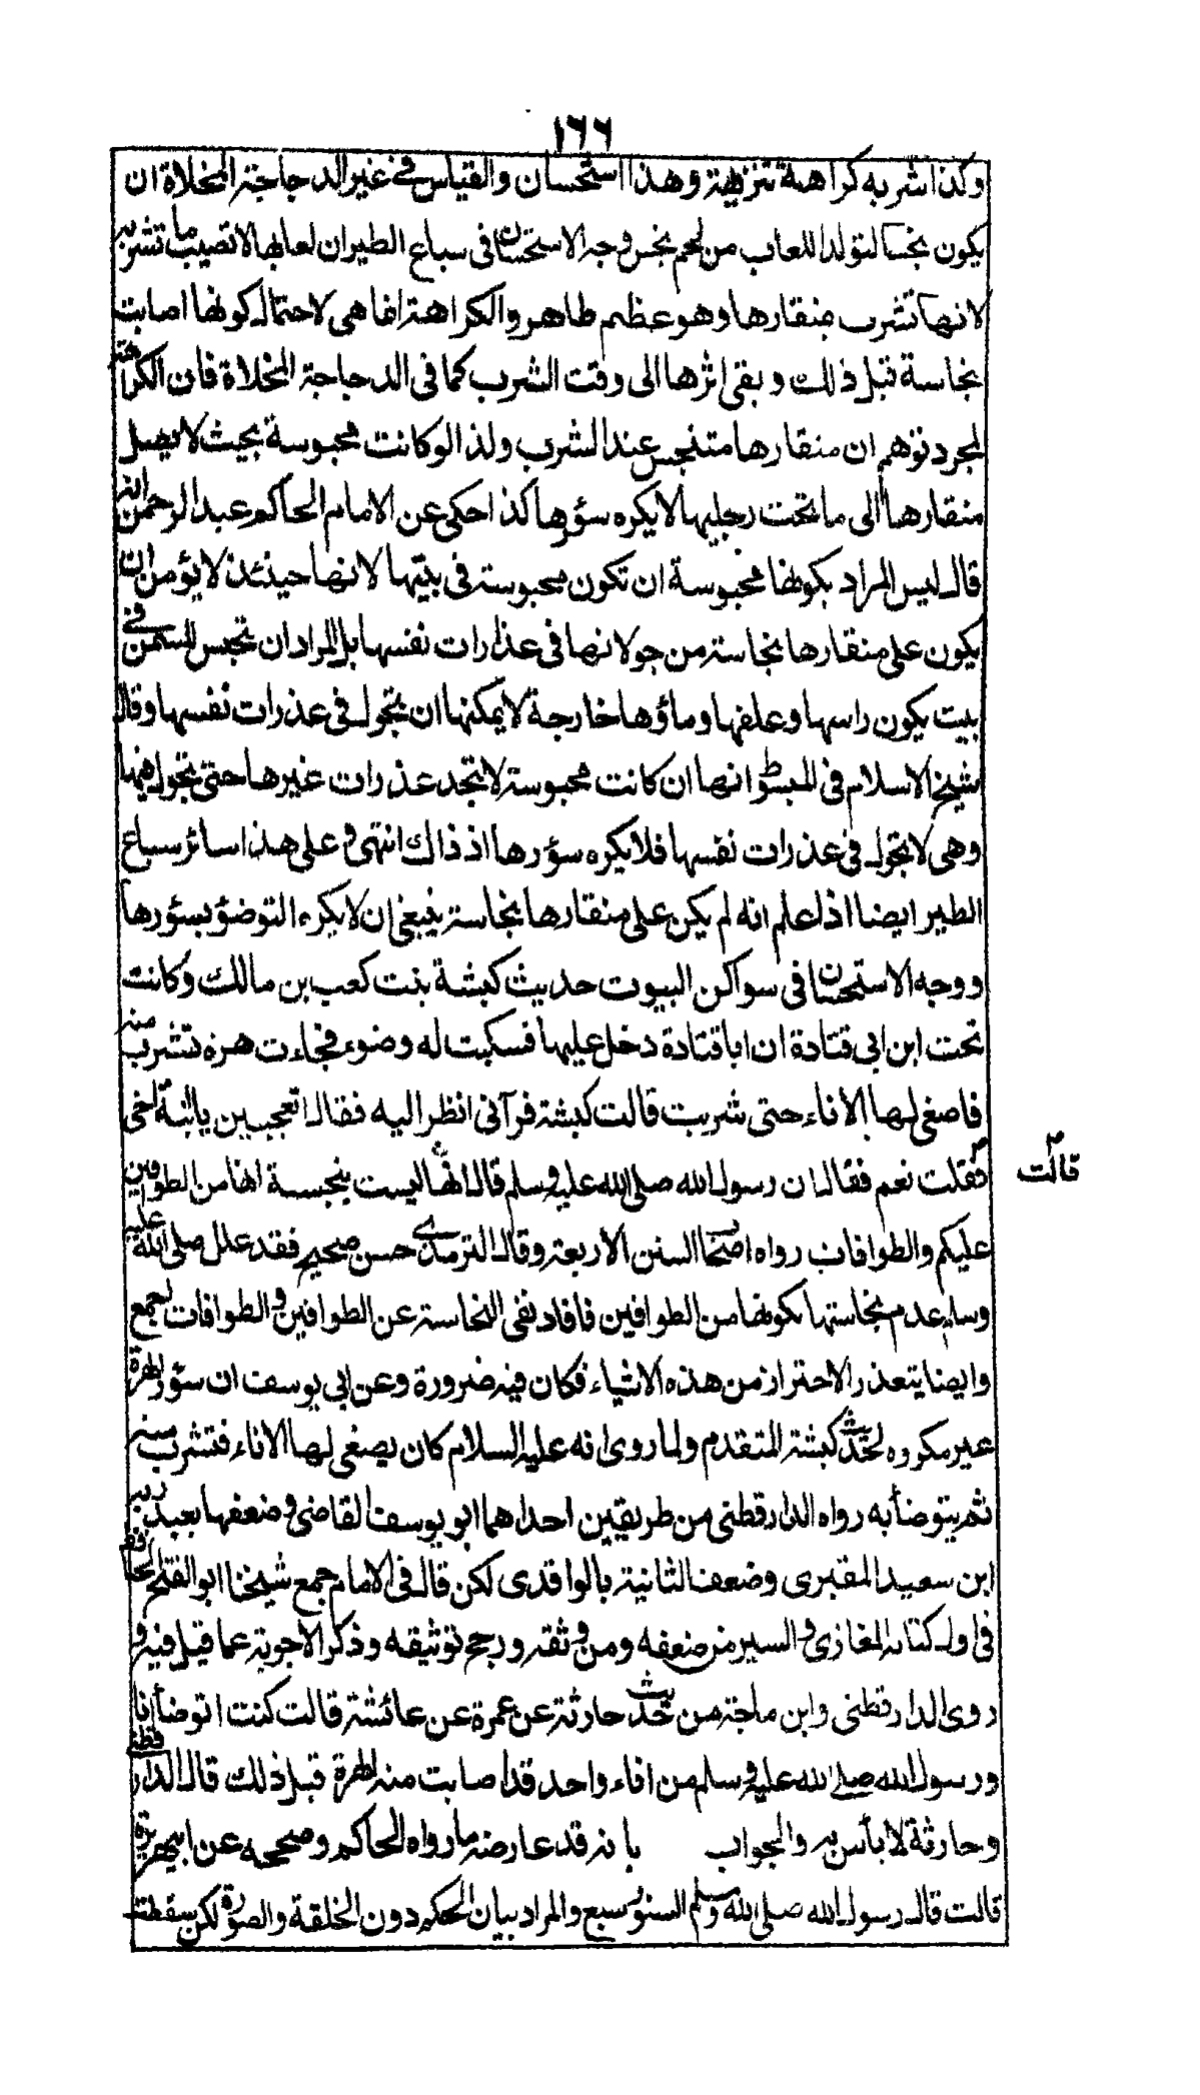 ١٦٦
وكذا شربه كراهة تنزيهية وهذا استحسان والقياس في غير الدجاجة المخلاة ان
يكون نجسا لتولد اللعاب من لحم نجس وجه الاستحسان في سباع الطير ان لعابها لا تصيب ما تشربه
لانها تشرب بمنقارها وهو عظم طاهر والكراهة انما هي لاحتمال كونها اصابت
نجاسة قبل ذلك وبقى اثرها الى وقت الشرب كما في الدجاجة المخلاة فان الكراهة
لمجرد توهم ان منقارها متنجس عند الشرب ولذا لو كانت محبوسة بحيث لا يصل
منقارها الى ما تحت رجليها لا يكره سؤرها كذا حكى عن الامام الحاكم عبد الرحمن انه
قال ليس المراد بكونها محبوسة ان تكون محبوسة في بيتها لانها حينئذ لا يؤمن ان
يكون على منقارها نجاسة من جولانها في عذرات نفسها بل المراد ان تحبس للسمن في
بيت يكون راسها وعلفها وماؤها خارجة لا يمكنها ان تجول في عذرات نفسها وقال
شيخ الاسلام في المبسوط انها ان كانت محبوسة لا تجد عذرات غيرها حتى تجول فيها
وهي لا تجول في عذرات نفسها فلا يكره سؤرها اذ ذاك انتهى وعلى هذا سائر سباع
الطير ايضا اذا علم انه لم يكن على منقارها نجاسة ينبغي ان لا يكره التوضؤ بسؤرها
ووجه الاستحسان في سواكن البيوت حديث كبشة بنت كعب بن مالك وكانت
تحت ابن ابي قتادة ان ابا قتادة دخل عليها فسكبت له وضوء فجاءت هرة تشرب منه
فاصغى لها الاناء حتى شربت قالت كبشة فرآني انظر اليه فقال اتعجبين يا ابنة اخي
قالت
فقلت نعم فقال ان رسول الله صلى الله عليه وسلم قال انها ليست بنجسة انها من الطوافين
عليكم والطوافات رواه اصحاب السنن الاربعة وقال الترمذي حسن صحيح فقد علل صلى الله عليه
وسلم عدم نجاستها بكونها من الطوافين فافاد نفى النجاسة عن الطوافين والطوافات اجمع
وايضا يتعذر الاحتراز من هذه الاشياء فكان فيه ضرورة وعن ابي يوسف ان سؤر الهرة
غير مكروه لحديث كبشة المتقدم ولما روى انه عليه السلام كان يصغى لها الاناء فتشرب منه
ثم يتوضأ به رواه الدارقطنى من طريقين احداهما ابو يوسف القاضى وضعفها بعبد ربه
ابن سعيد المقبرى وضعف الثانية بالواقدى لكن قال في الامام جمع شيخنا ابو الفتح الحافظ
في اول كتابه المغازى والسير من ضعفه ومن وثقه ورجح توثيقه وذكر الاجوبة عما قيل فيه و
روى الدارقطنى وابن ماجة من حديث حارثة عن عمرة عن عائشة قالت كنت اتوضأ انا
ورسول الله صلى الله عليه وسلم من اناء واحد قد اصابت منه الهرة قبل ذلك قال الدارقطنى
وحارثة لا بأس به والجواب بانه قد عارضه ما رواه الحاكم وصححه عن ابي هريرة
قالت قال رسول الله صلى الله وسلم السنور سبع والمراد بيان الحكم دون الخلقة والصورة لكن سقطت